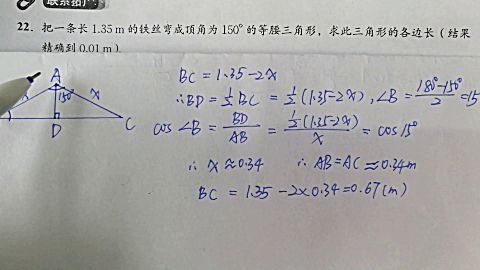 22. 把一条长 1.35 m 的铁丝弯成顶角为 150° 的等腰三角形，求此三角形的各边长（结果
精确到 0.01 m）.
BC = 1.35-2x
∴BD = 1/2 BC = 1/2 (1.35-2x), ∠B = (180°-150°)/2 = 15
cos∠B = BD/AB = 1/2(1.35-2x)/x = cos15°
∴ x ≈ 0.34 ∴ AB=AC ≈ 0.34m
BC = 1.35 - 2×0.34 = 0.67(m)
A
x 150° x
D C